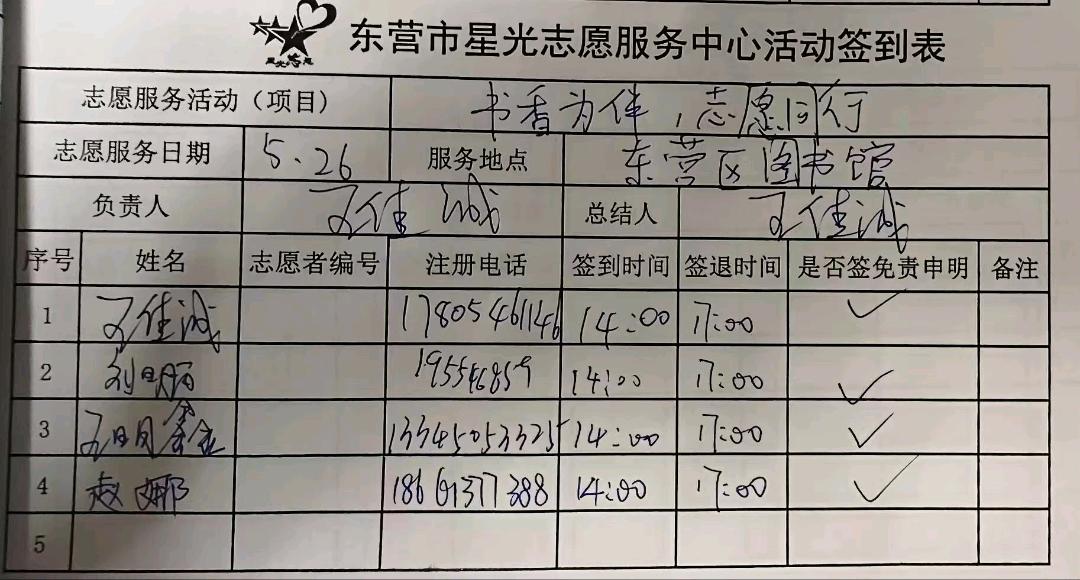 星光志愿
东营市星光志愿服务中心活动签到表
志愿服务活动（项目） 书香为伴，志愿同行
志愿服务日期 5.26 服务地点 东营区图书馆
负责人 王佳诚 总结人 王佳诚
序号 姓名 志愿者编号 注册电话 签到时间 签退时间 是否签免责申明 备注
1 王佳诚 17805461146 14:00 17:00 ✓
2 14:00 17:00 ✓
3 13345053325 14:00 17:00 ✓
4 赵娜 14:00 17:00 ✓
5